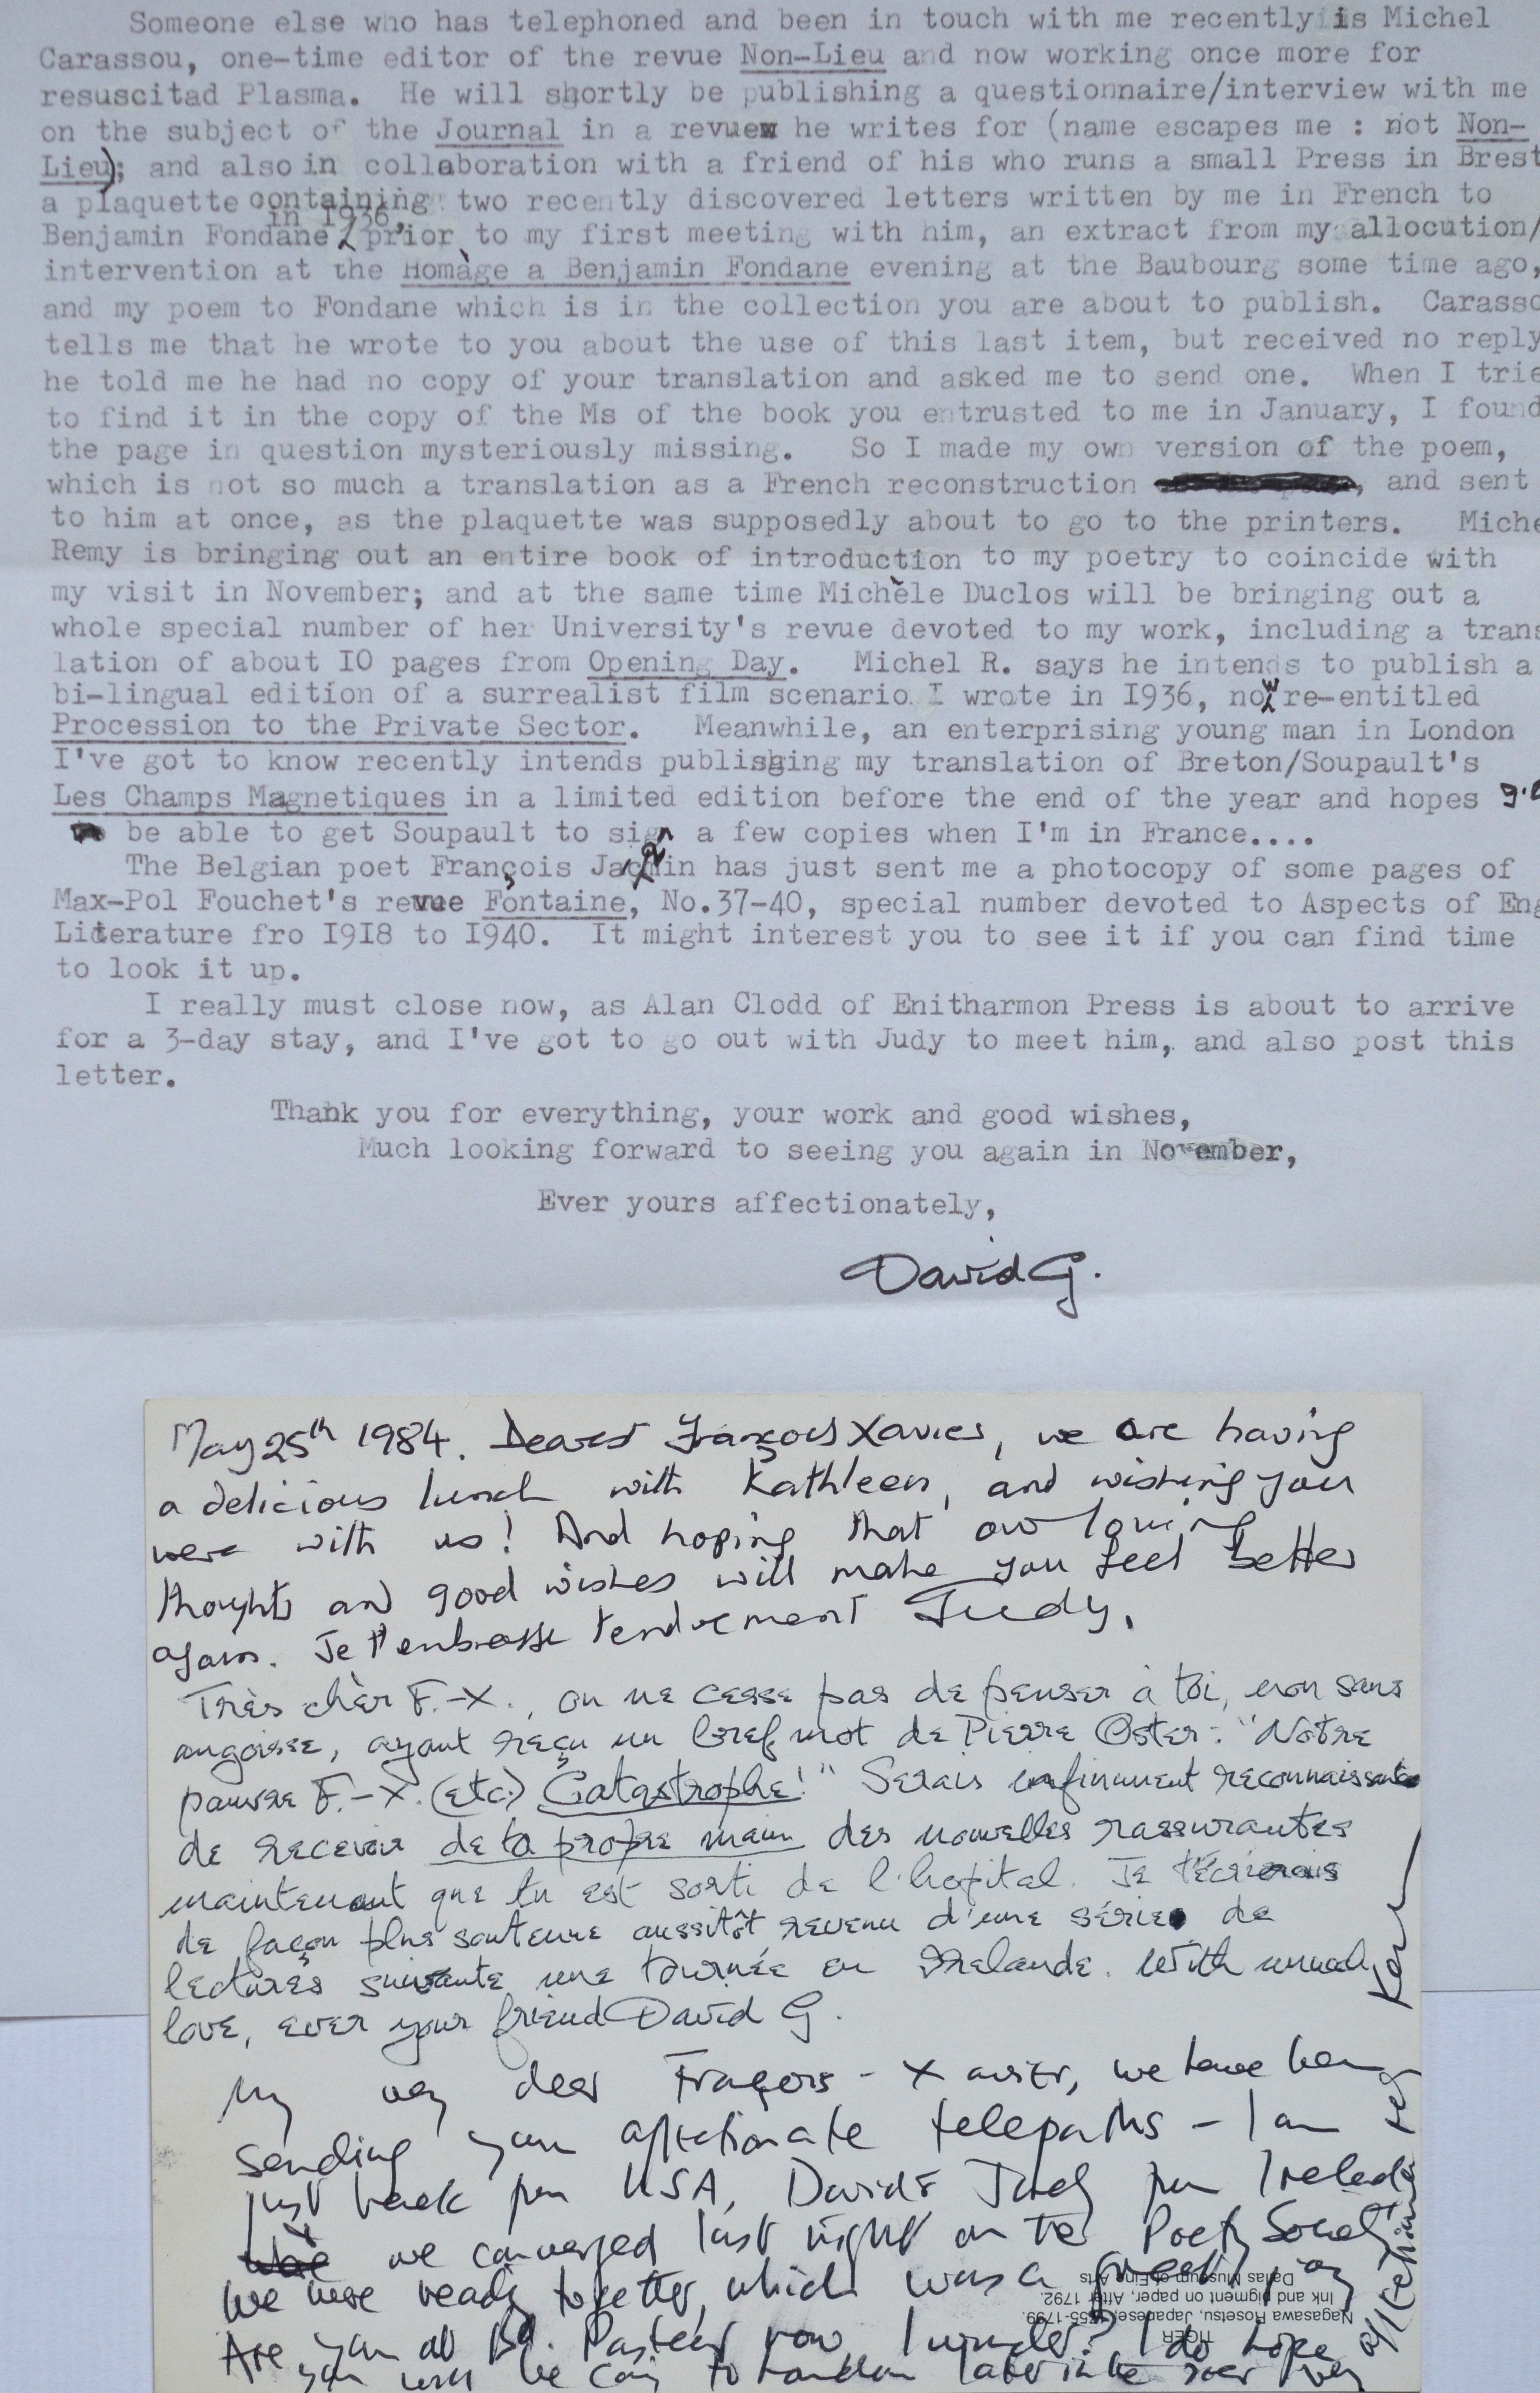 Someone else who has telephoned and been in touch with me recently is Michel
Carassou, one-time editor of the revue Non-Lieu and now working once more for
resuscitad Plasma. He will shortly be publishing a questionnaire/interview with me
on the subject of the Journal in a revue he writes for (name escapes me : not Non-
Lieu); and also in collaboration with a friend of his who runs a small Press in Brest
a plaquette containing two recently discovered letters written by me in French to
in 1936,
Benjamin Fondane prior to my first meeting with him, an extract from my allocution/
intervention at the Homàge a Benjamin Fondane evening at the Baubourg some time ago,
and my poem to Fondane which is in the collection you are about to publish. Carasso
tells me that he wrote to you about the use of this last item, but received no reply
he told me he had no copy of your translation and asked me to send one. When I trie
to find it in the copy of the Ms of the book you entrusted to me in January, I found
the page in question mysteriously missing. So I made my own version of the poem,
which is not so much a translation as a French reconstruction , and sent
to him at once, as the plaquette was supposedly about to go to the printers. Miche
Remy is bringing out an entire book of introduction to my poetry to coincide with
my visit in November; and at the same time Michèle Duclos will be bringing out a
whole special number of her University's revue devoted to my work, including a trans
lation of about IO pages from Opening Day. Michel R. says he intends to publish a
bi-lingual edition of a surrealist film scenario I wrote in I936, now re-entitled
Procession to the Private Sector. Meanwhile, an enterprising young man in London
I've got to know recently intends publishing my translation of Breton/Soupault's
Les Champs Magnetiques in a limited edition before the end of the year and hopes
be able to get Soupault to sign a few copies when I'm in France....
The Belgian poet François Jacqin has just sent me a photocopy of some pages of
Max-Pol Fouchet's revue Fontaine, No.37-40, special number devoted to Aspects of Eng
Literature fro I9I8 to I940. It might interest you to see it if you can find time
to look it up.
I really must close now, as Alan Clodd of Enitharmon Press is about to arrive
for a 3-day stay, and I've got to go out with Judy to meet him, and also post this
letter.
Thank you for everything, your work and good wishes,
Much looking forward to seeing you again in November,
Ever yours affectionately,
David G.
May 25th 1984. Dearest François Xavier, we are having
a delicious lunch with Kathleen, and wishing you
were with us! And hoping that our loving
thoughts and good wishes will make you feel better
again. Je t'enbrasse tendrement Judy.
Très chèr F.-X., on ne cesse pas de penser à toi, non sans
angoisse, ayant reçu un bref mot de Pierre Oster: "Notre
pauvre F.-X. (etc.) Catastrophe!" Serais infiniment reconnaissant
de recevoir de ta propre main des nouvelles rassurantes
maintenant que tu est sorti de l'hopital. Je t'écrirais
de façon plus soutenue aussitôt revenu d'une série de
lectures suivante une tournée en Irelande. With much
love, ever your friend David G.
My very dear Fraçois-Xavier, we have been
sending you affectionate telepaths - I am
just back from USA, David & Judy from Ireland
we converged last night on the Poetry Society
We were reading together, which was a great joy
Are you at Bd. Pasteur now I wonder? I do hope
you will be coming to London later in the
TIGER
Nagasawa Rosetsu, Japanese, 1755-1799.
Ink and pigment on paper, After 1792.
Dallas Museum of Fine Arts